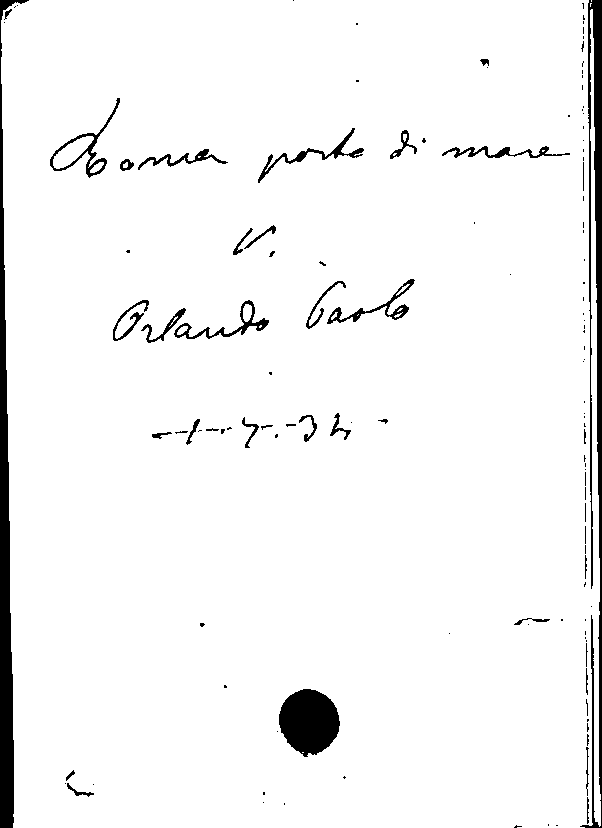 Roma porto di mare
V.
Orlando Paolo
-1-7-34-